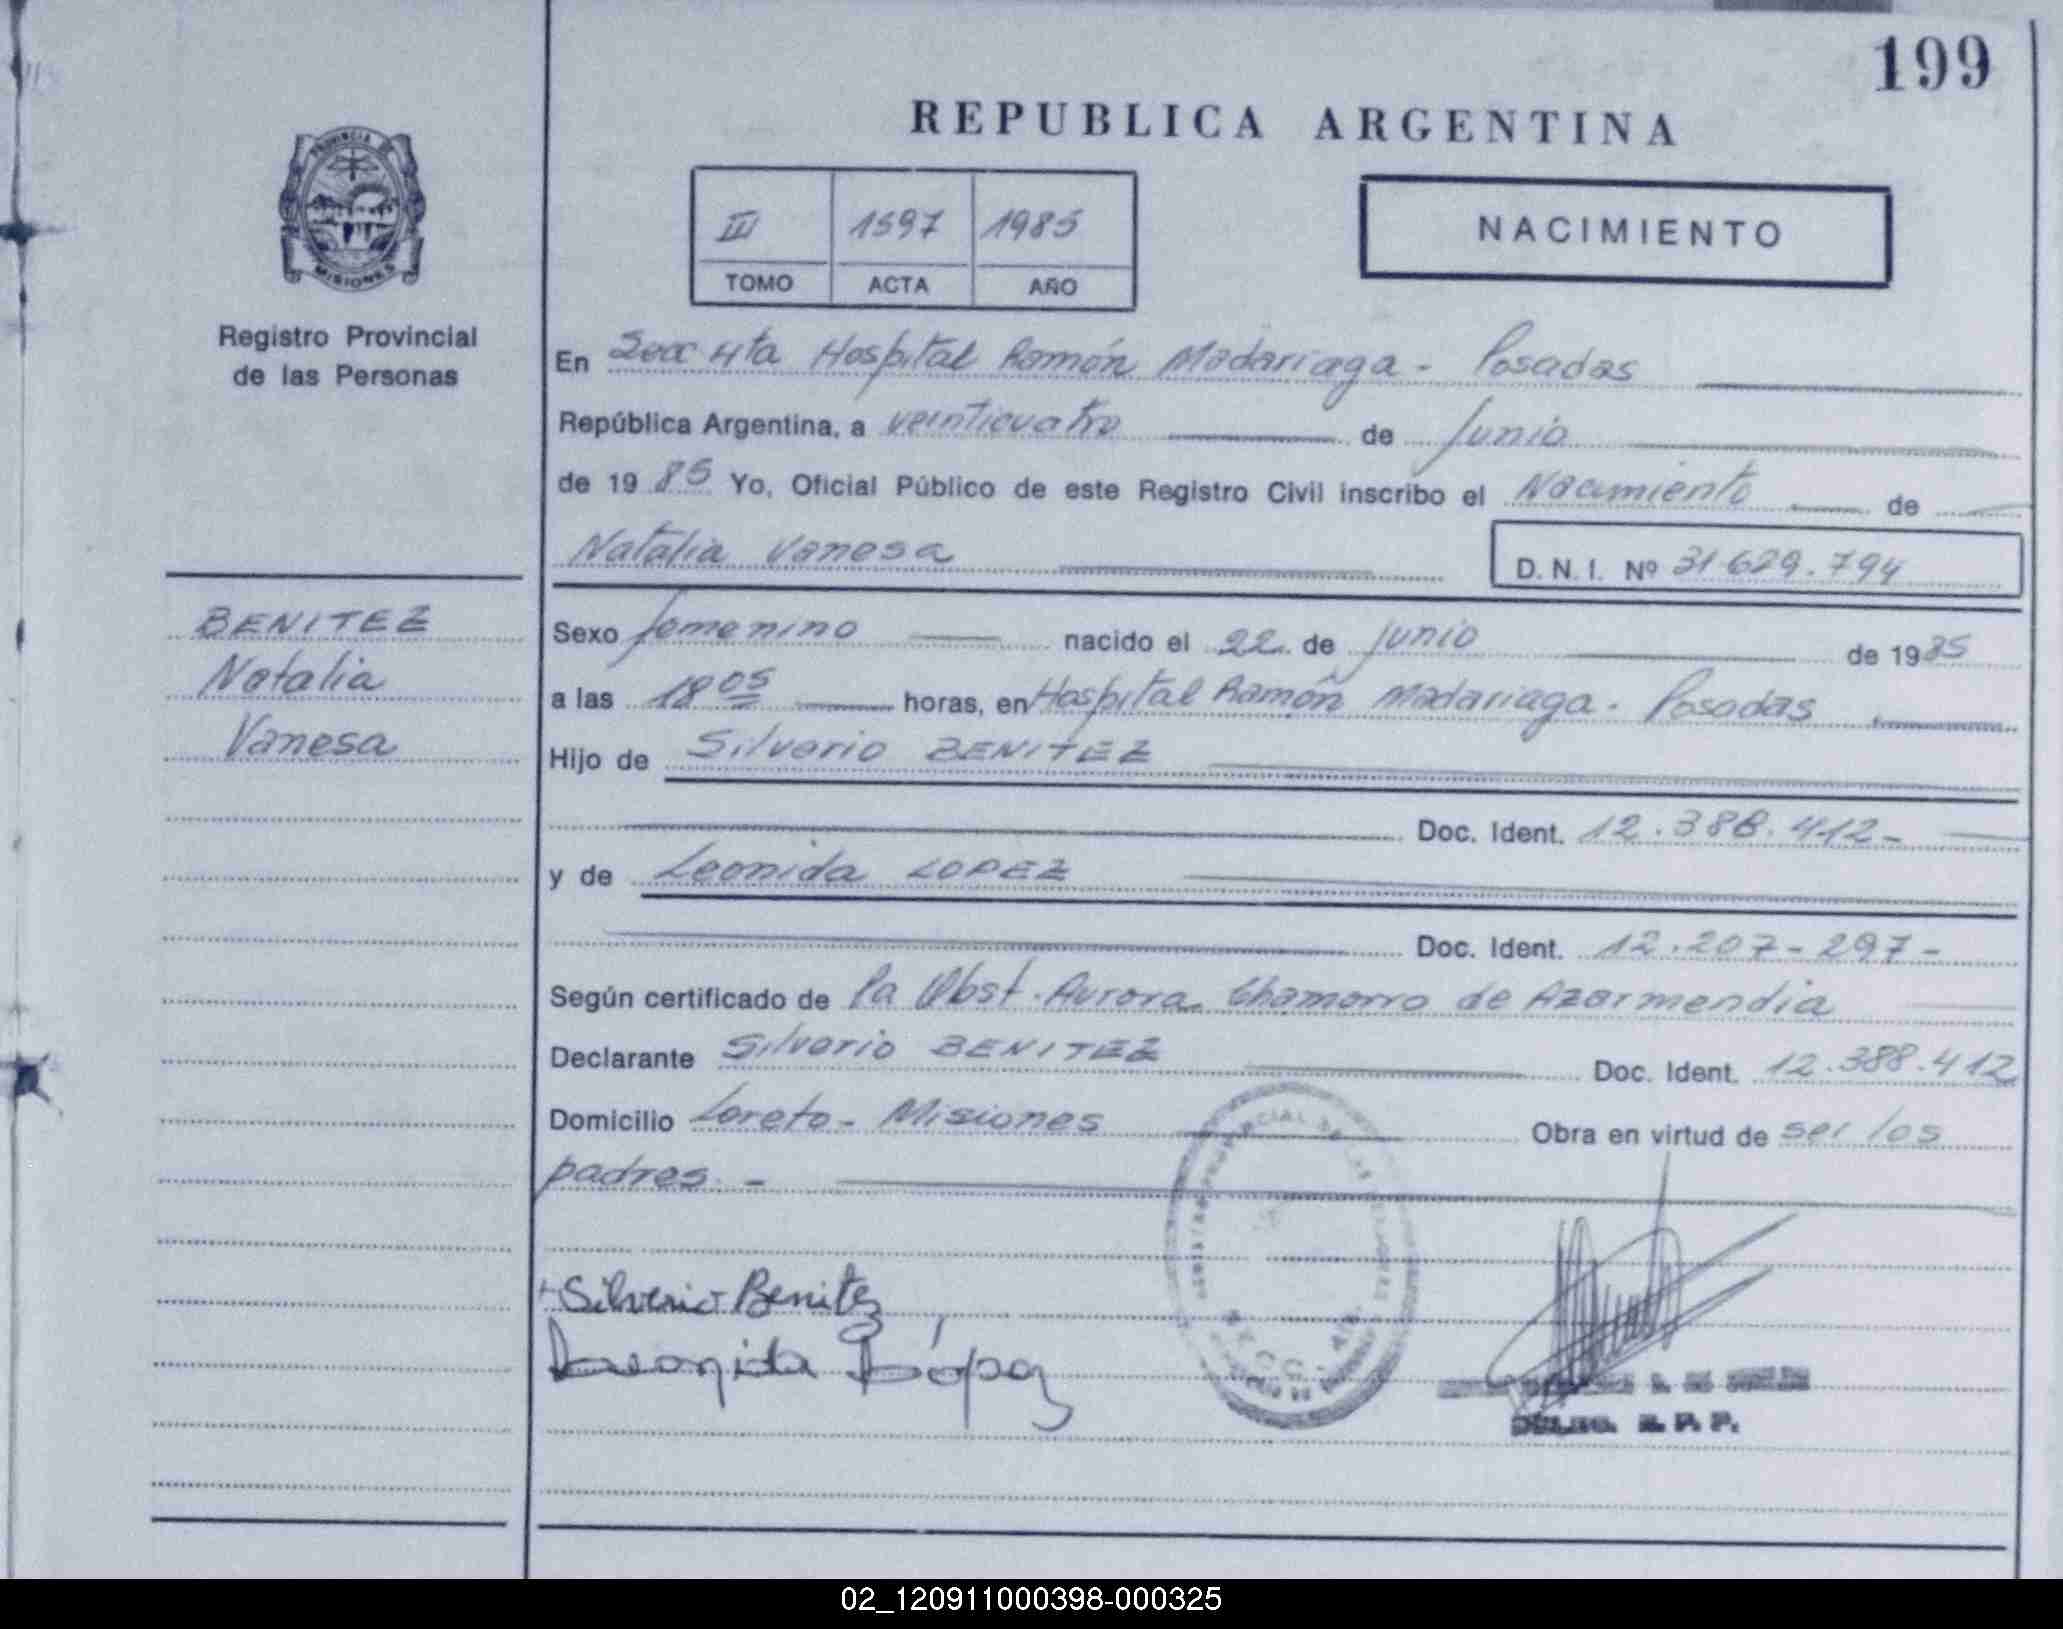 199
REPUBLICA ARGENTINA
PROVINCIA DE
MISIONES
Registro Provincial
de las Personas
III 1597 1985
TOMO ACTA AÑO
NACIMIENTO
En Secc 4ta Hospital Ramón Madariaga - Posadas
República Argentina, a veinticuatro de Junio
de 1985 Yo, Oficial Público de este Registro Civil inscribo el Nacimiento de
Natalia Vanesa D.N.I. Nº 31.629.794
BENITEZ
Natalia
Vanesa
Sexo femenino nacido el 22 de junio de 1985
a las 18 05 horas, en Hospital Ramón Madariaga - Posadas
Hijo de Silverio BENITEZ
Doc. Ident. 12.388.412-
y de Leonida LOPEZ
Doc. Ident. 12.207-297-
Según certificado de la Obst. Aurora Chamorro de Azarmendia
Declarante Silverio BENITEZ Doc. Ident. 12.388.412
Domicilio Loreto - Misiones Obra en virtud de ser los
padres. -
Silverio Benitez
Leonida López
02_120911000398-000325